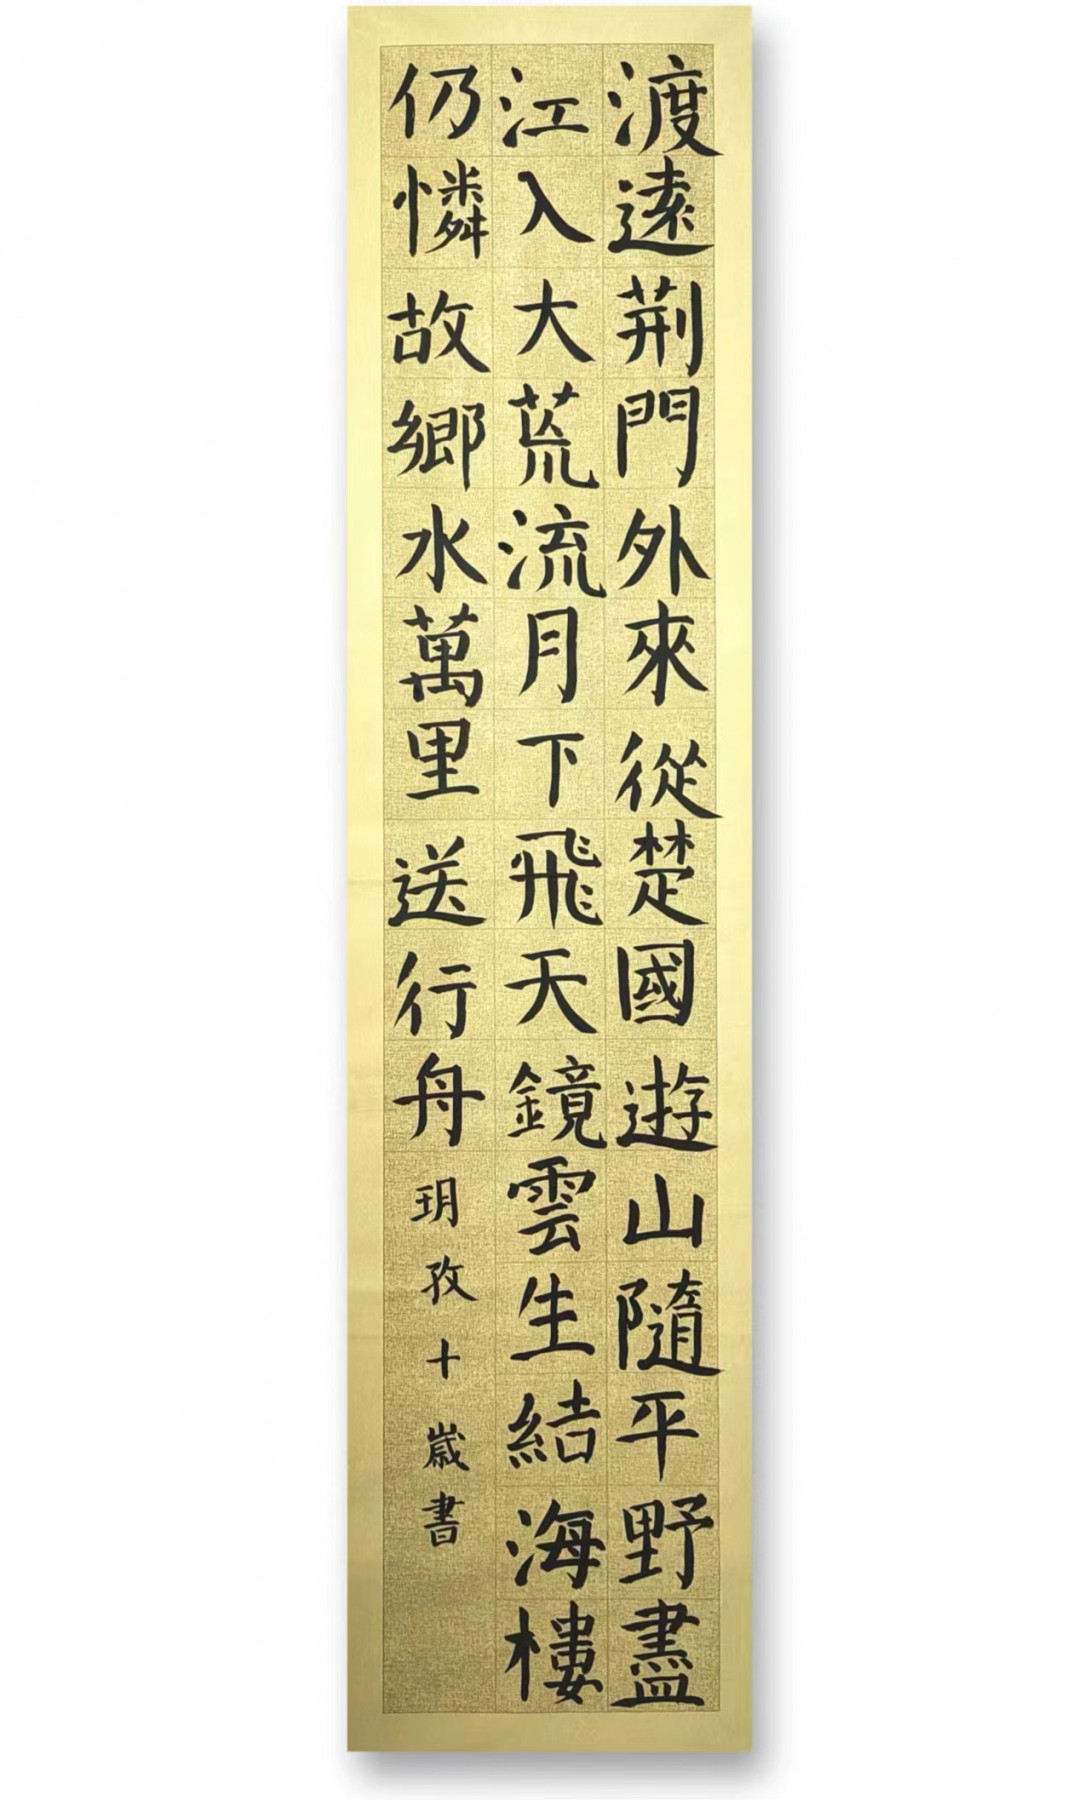 渡遠荆門外來從楚國遊山隨平野盡
江入大荒流月下飛天鏡雲生結海樓
仍憐故鄉水萬里送行舟玥孜十歲書